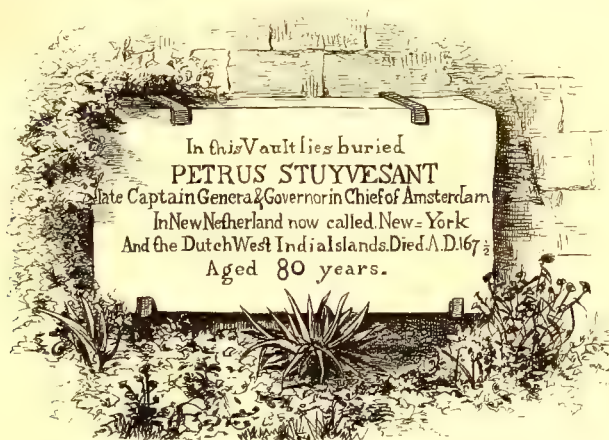 In this Vault lies buried
PETRUS STUYVESANT
late Captain Genera & Governor in Chief of Amsterdam
In New Netherland now called New=York
And the Dutch West India Islands. Died A.D. 167½
Aged 80 years.